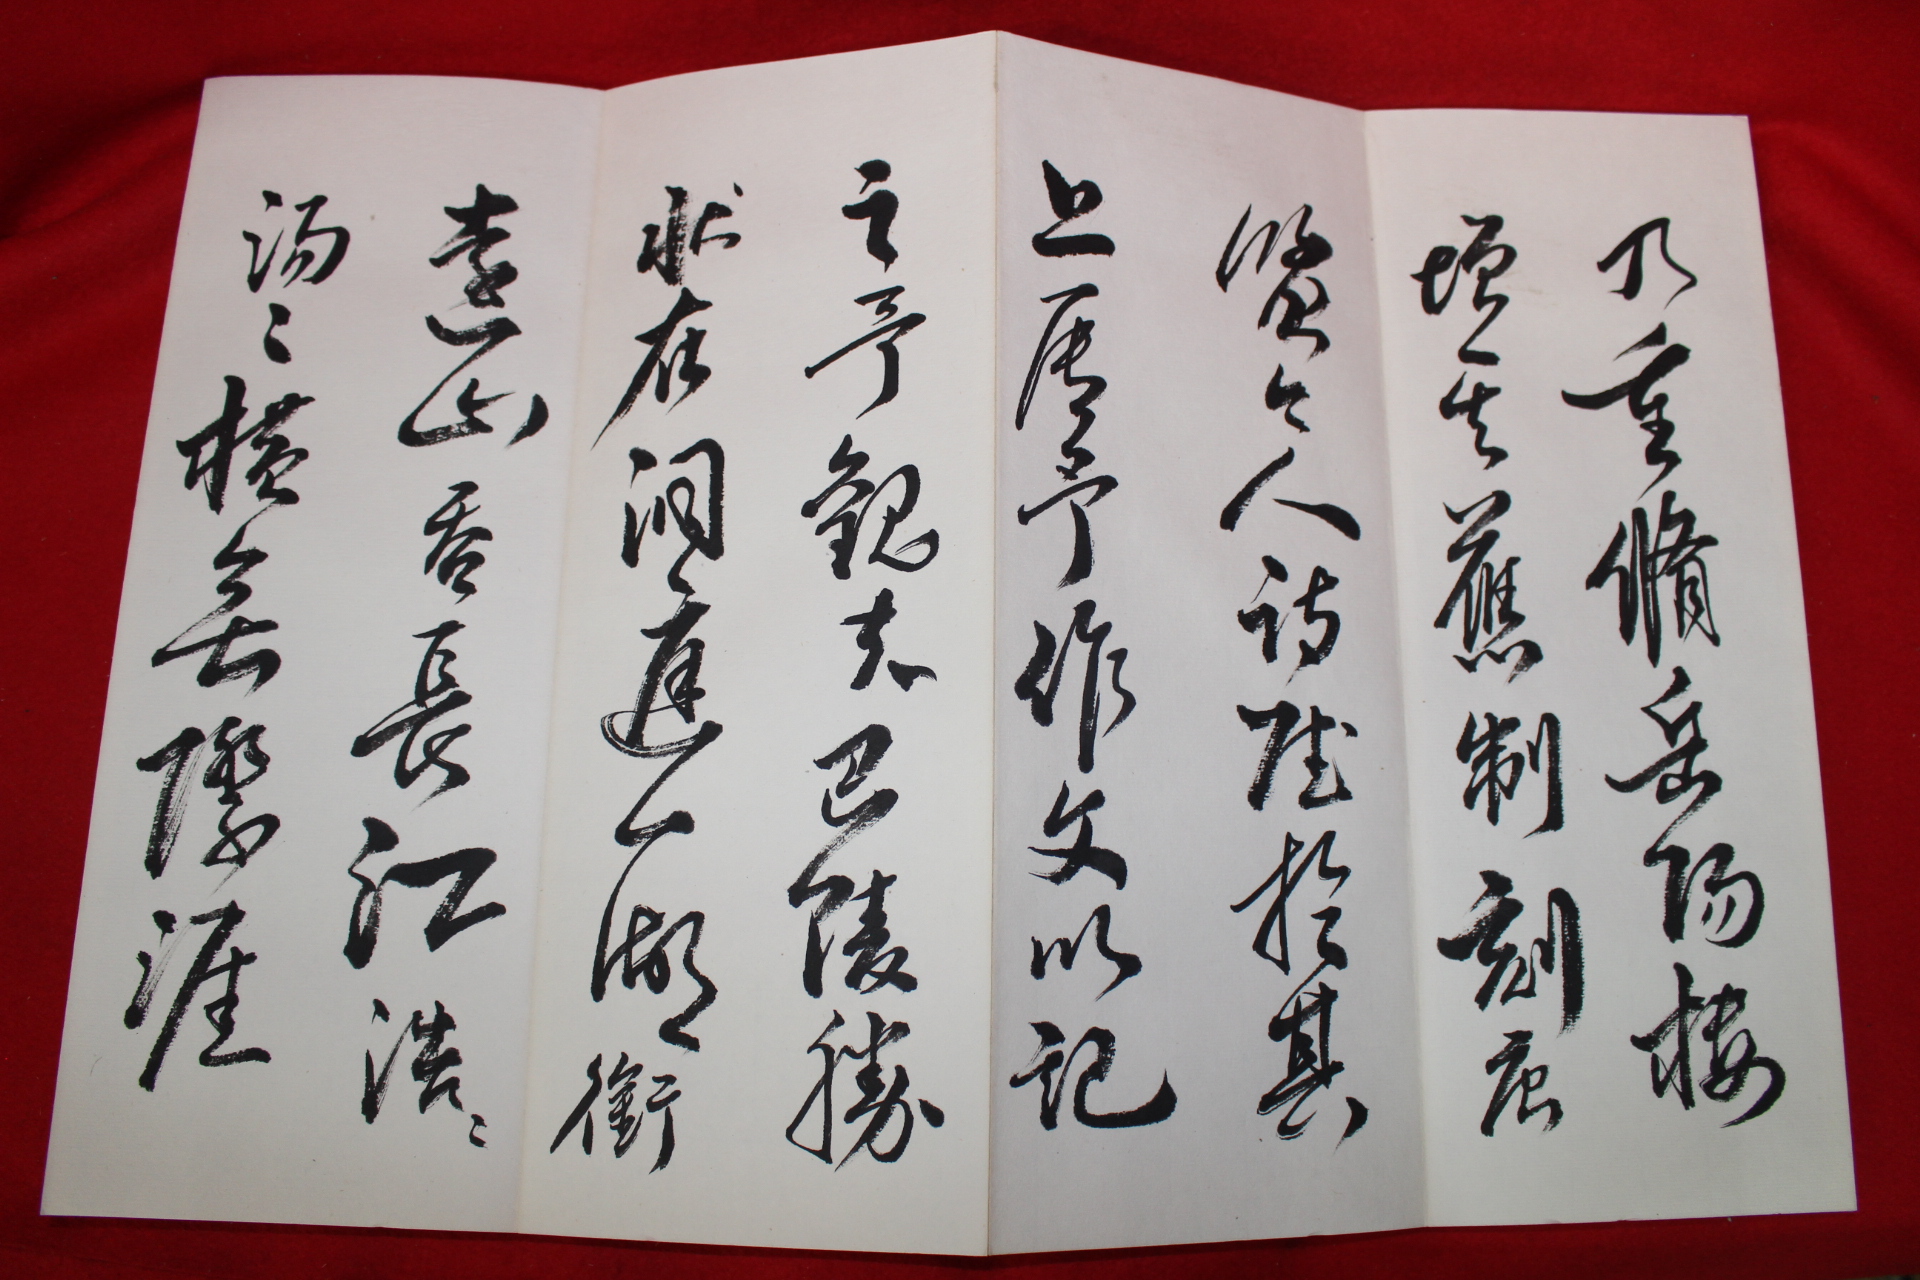 乃重脩岳陽樓
增其舊制刻唐
賢今人詩賦於其
上属予作文以記
之予觀夫巴陵勝
狀在洞庭一湖銜
遠山吞長江浩〻
湯〻橫無際涯